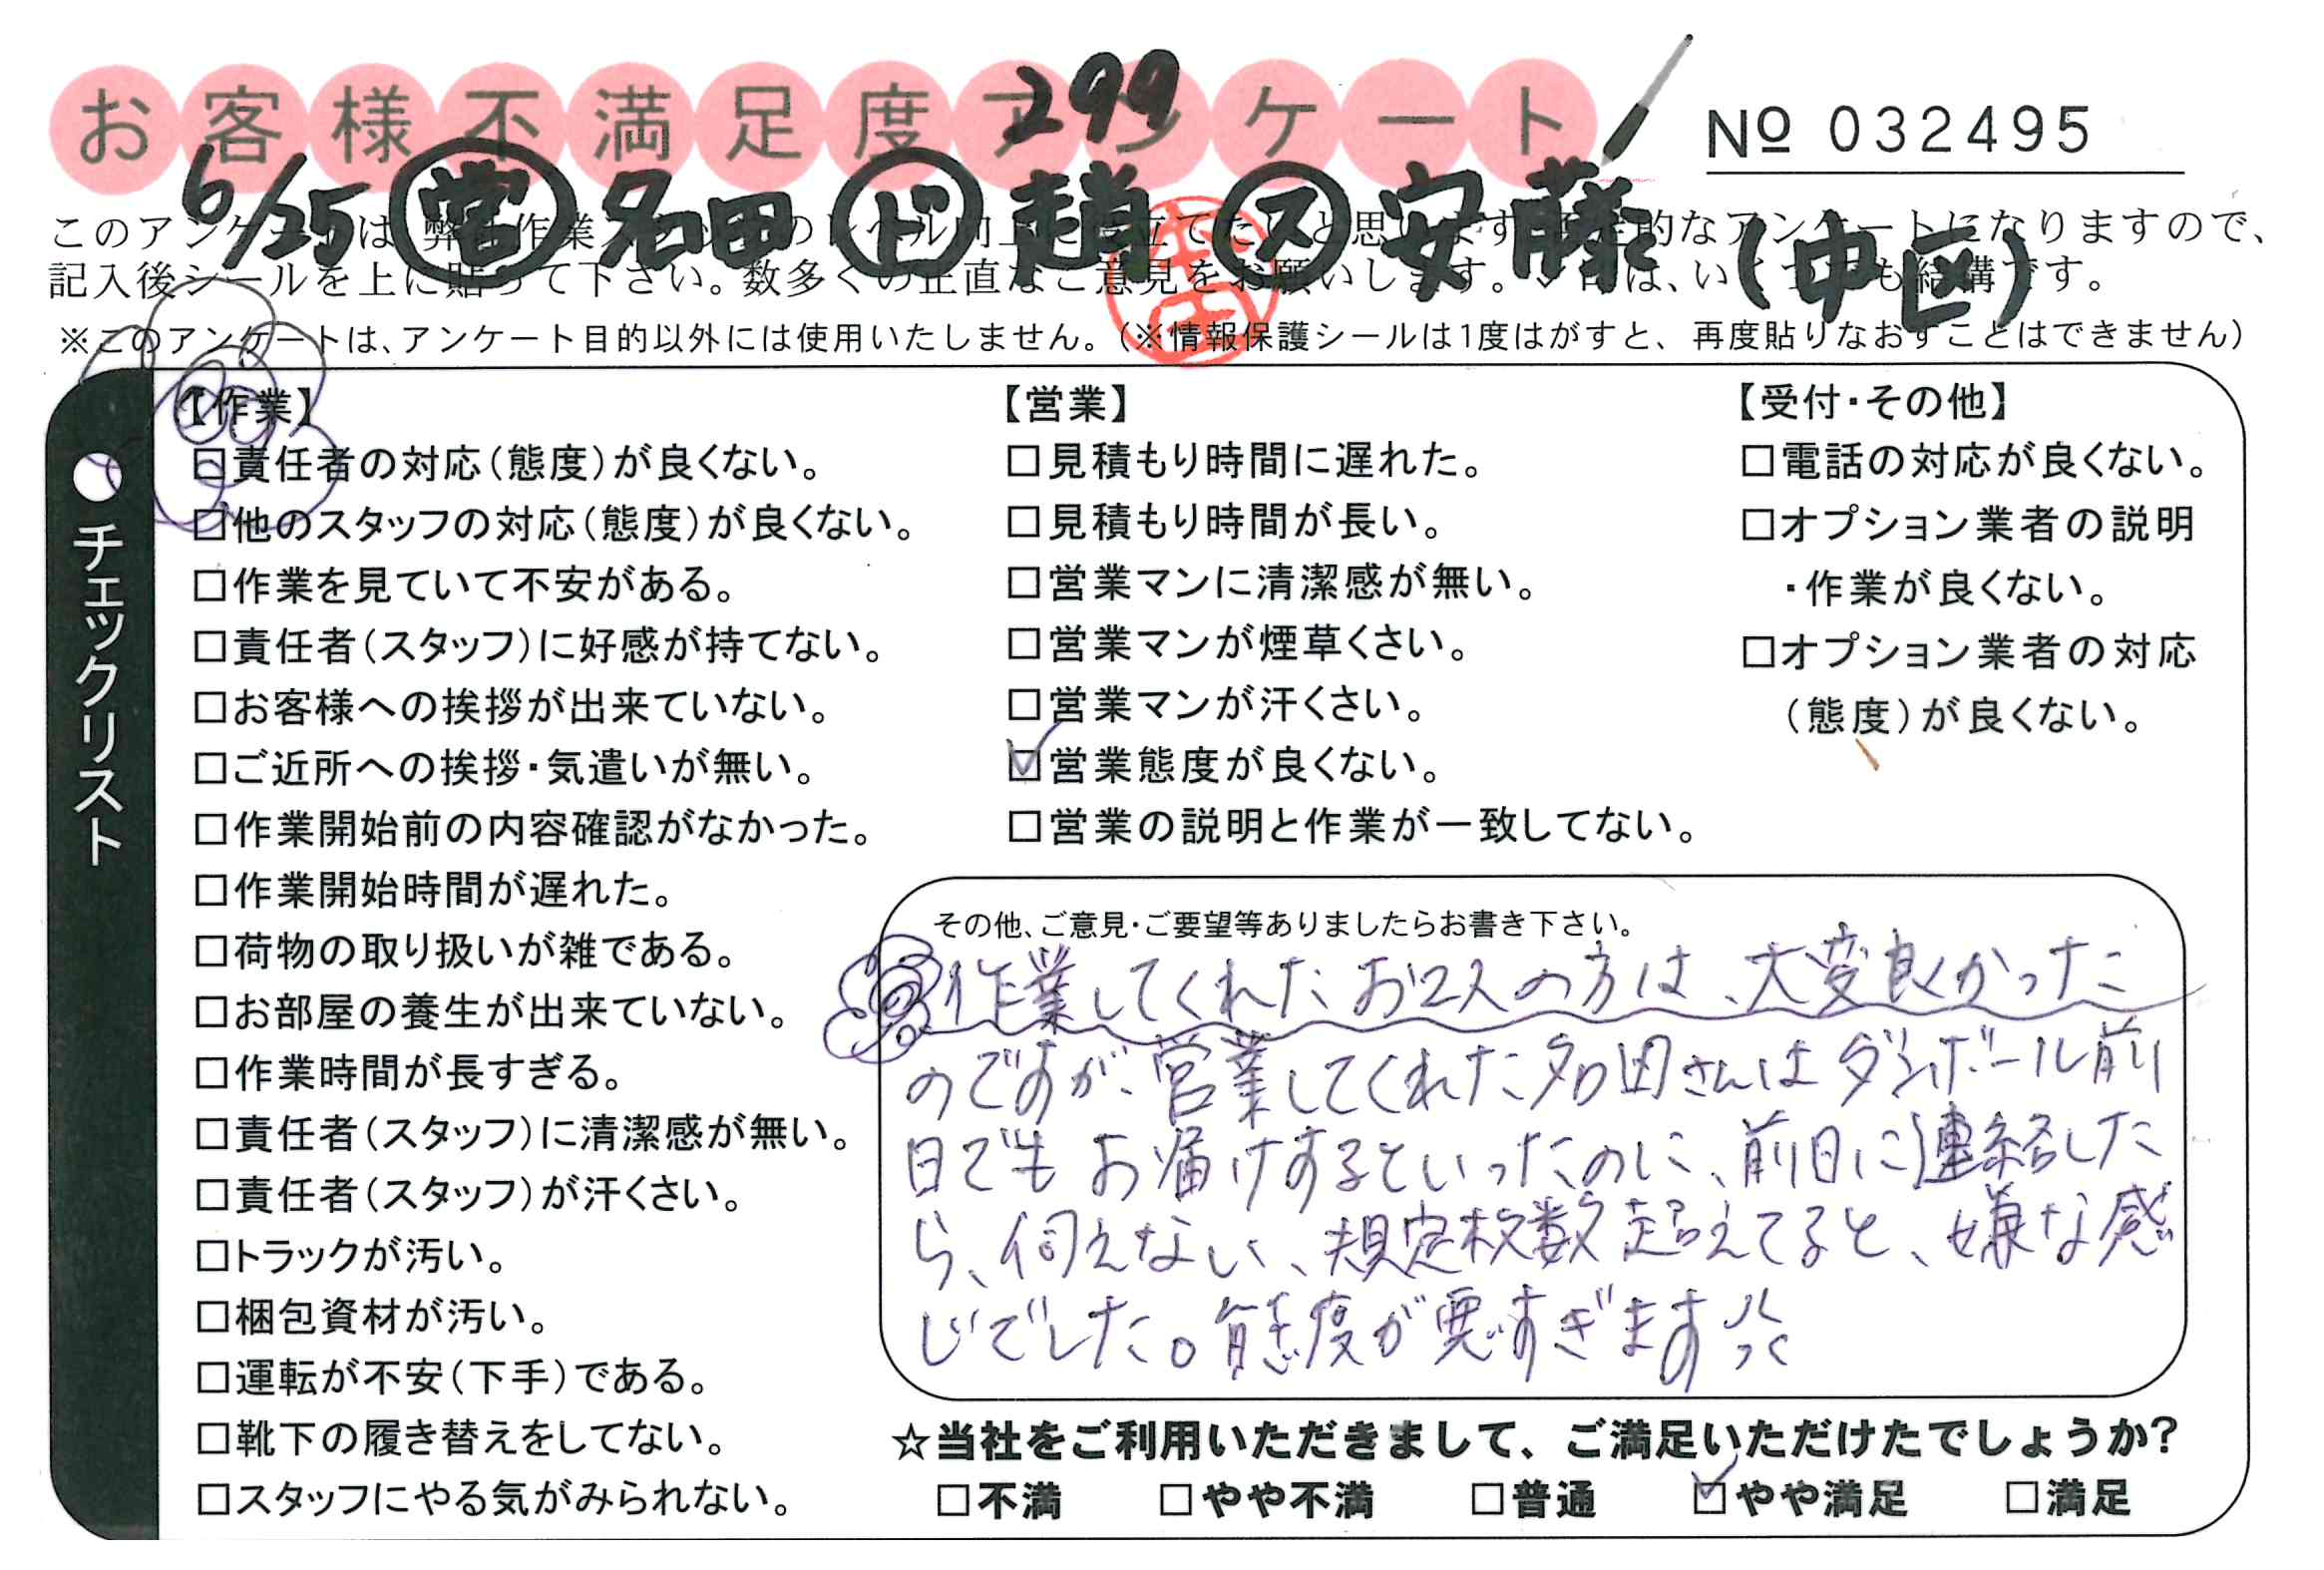 お客様不満足度アンケート
299
No 032495
6/25 営 名田 ド 趙 ス 安藤 (中区)
このアンケートは、弊社作業スタッフのレベル向上に役立てたいと思います。定期的なアンケートになりますので、
記入後シールを上に貼って下さい。数多くの正直なご意見をお願いします。✓印は、いくつでも結構です。
※このアンケートは、アンケート目的以外には使用いたしません。(※情報保護シールは1度はがすと、再度貼りなおすことはできません)
●チェックリスト
【作業】
□責任者の対応(態度)が良くない。
□他のスタッフの対応(態度)が良くない。
□作業を見ていて不安がある。
□責任者(スタッフ)に好感が持てない。
□お客様への挨拶が出来ていない。
□ご近所への挨拶・気遣いが無い。
□作業開始前の内容確認がなかった。
□作業開始時間が遅れた。
□荷物の取り扱いが雑である。
□お部屋の養生が出来ていない。
□作業時間が長すぎる。
□責任者(スタッフ)に清潔感が無い。
□責任者(スタッフ)が汗くさい。
□トラックが汚い。
□梱包資材が汚い。
□運転が不安(下手)である。
□靴下の履き替えをしてない。
□スタッフにやる気がみられない。
【営業】
□見積もり時間に遅れた。
□見積もり時間が長い。
□営業マンに清潔感が無い。
□営業マンが煙草くさい。
□営業マンが汗くさい。
☑営業態度が良くない。
□営業の説明と作業が一致してない。
【受付・その他】
□電話の対応が良くない。
□オプション業者の説明
・作業が良くない。
□オプション業者の対応
(態度)が良くない。
その他、ご意見・ご要望等ありましたらお書き下さい。
作業してくれたお2人の方は、大変良くかった
のですが、営業してくれた名田さんはダンボール前
日でもお届けするといったのに、前日に連絡した
ら、伺えない、規定枚数超えてると、嫌な感
じでした。態度が悪すぎます
☆当社をご利用いただきまして、ご満足いただけたでしょうか?
□不満 □やや不満 □普通 ☑やや満足 □満足